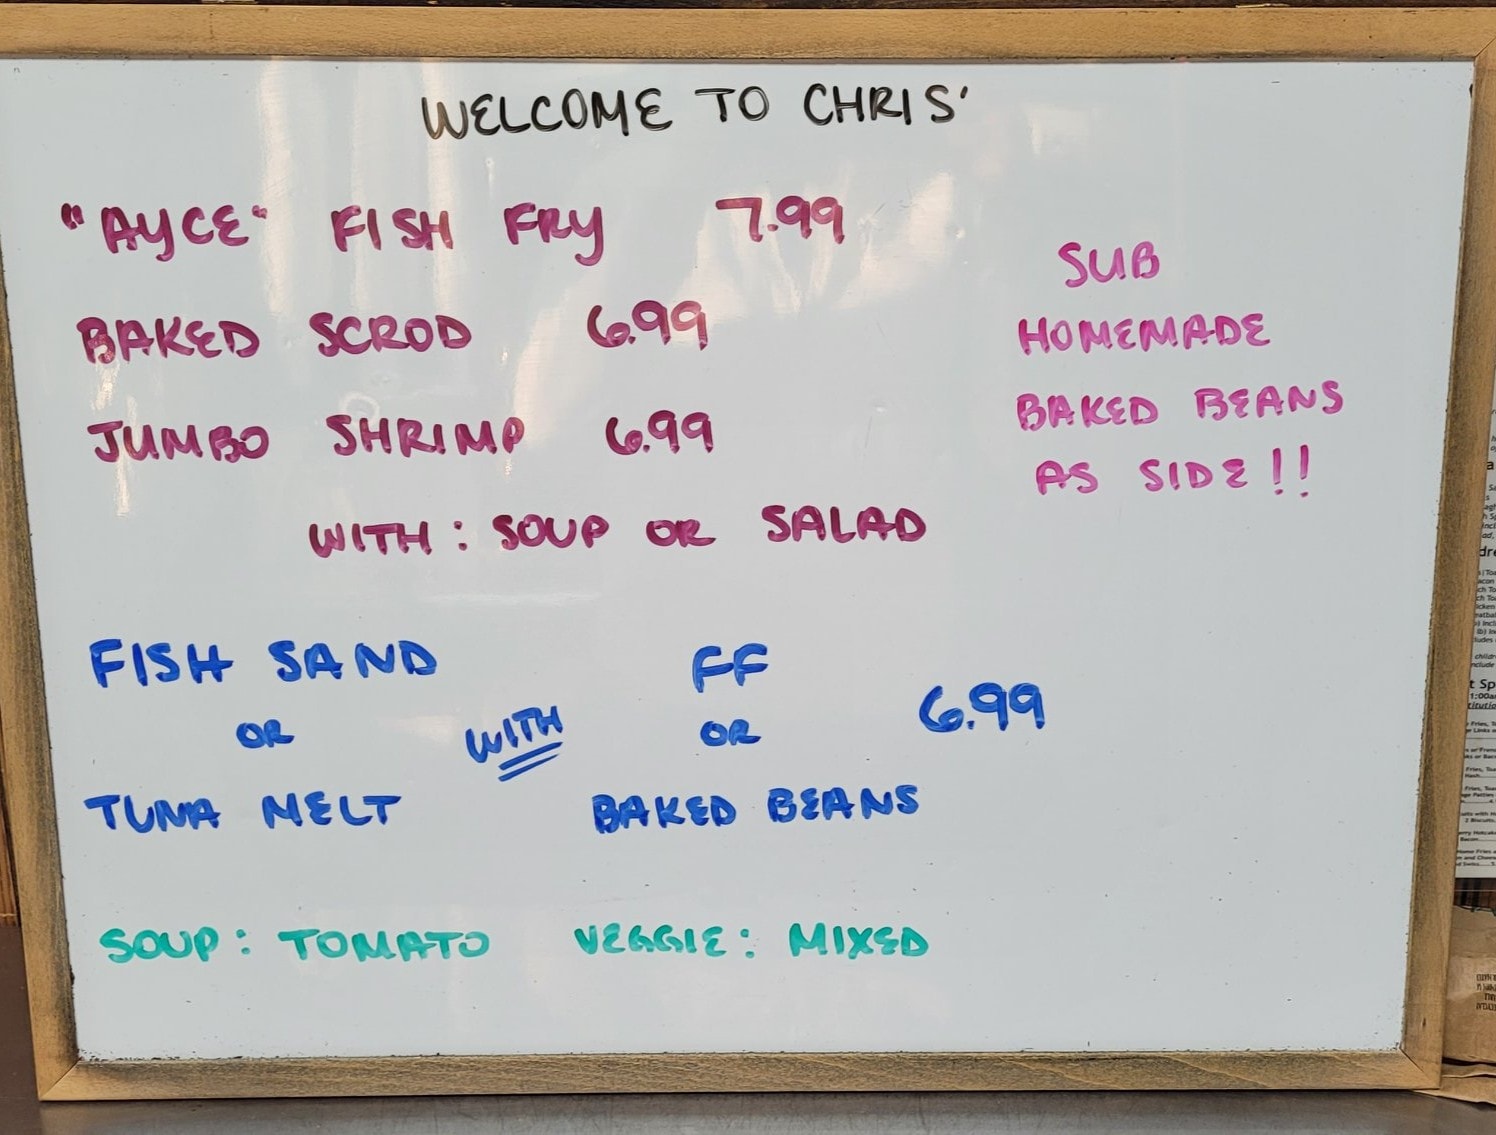 WELCOME TO CHRIS'
"AYCE" FISH FRY 7.99
BAKED SCROD 6.99
JUMBO SHRIMP 6.99
WITH: SOUP OR SALAD
SUB
HOMEMADE
BAKED BEANS
AS SIDE!!
FISH SAND
OR
TUNA MELT
WITH
FF
OR
BAKED BEANS
6.99
SOUP: TOMATO VEGGIE: MIXED